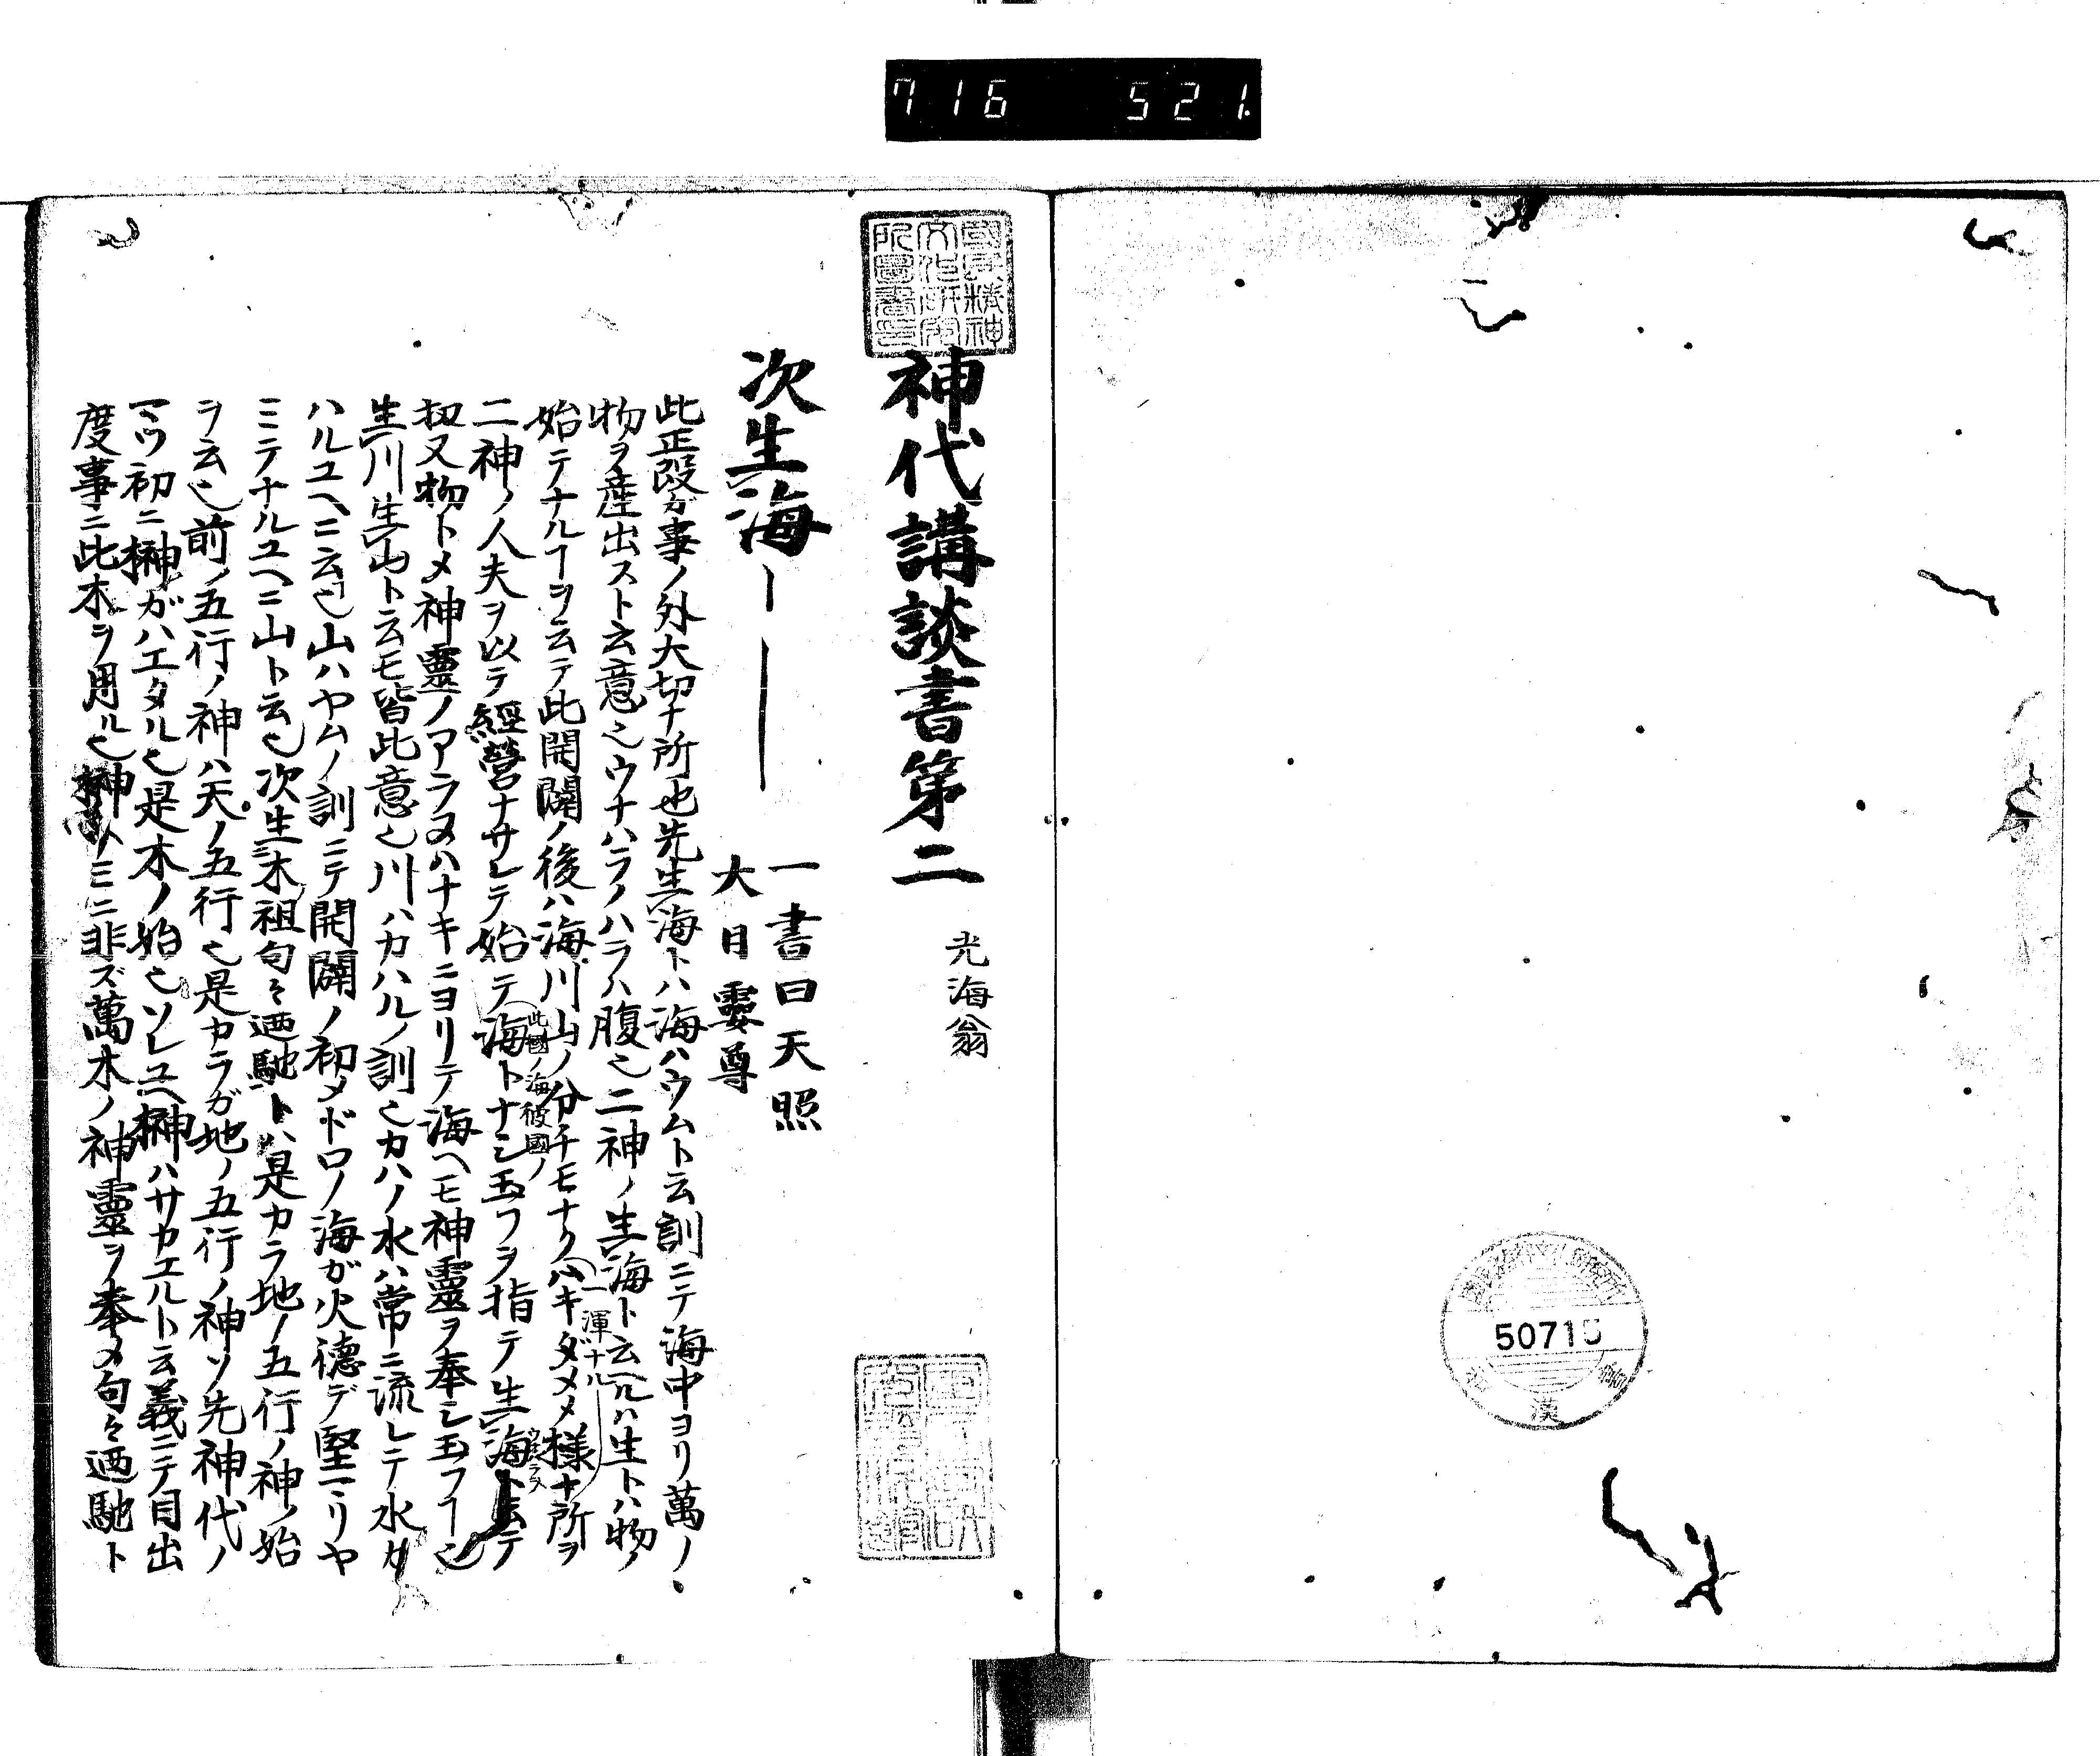 716 521.
50715
國民精神
文化研究
所圖書印
神代講談書第二
光海翁
次生海――
一書曰天照
大日孁尊
此正段ガ事ノ外大切ナ所也先生海トハ海ハウムト云訓ニテ海中ヨリ萬ノ
物ヲ産出スト云意也ウナハラノハラハ腹也二神ノ生海ト云ヿハ生トハ物ノ
始テナルヿヲ云テ此開闢ノ後ハ海川山ノ分チモナク(一渾ナル)ハキダメメ様ナ所ヲ
二神ノ人夫ヲ以テ經営ナサレテ始テ(此國ノ海彼國ノ)海トナシ玉フヲ指テ生海ト云テ
扨又物トメ神靈ノアラヌハナキニヨリテ海ヘモ神靈ヲ奉シ玉フヿ也
生川生山ト云モ皆此意也川ハカハルノ訓也カハノ水ハ常ニ流レテ水カ
ハルユヘニ云也山ハヤムノ訓ニテ開闢ノ初メドロノ海ガ火德デ堅マリヤ
ミテナルユヘニ山ト云也次生木祖句々廼馳トハ是カラ地ノ五行ノ神ノ始
ヲ云也前ノ五行ノ神ハ天ノ五行也是カラガ地ノ五行ノ神ソ先神代ノ
マツ初ニ榊ガハエタル也是木ノ始也ソレユヘ榊ハサカエルト云義ニテ目出
度事ニ此木ヲ用ル也榊ノミニ非ズ萬木ノ神靈ヲ奉メ句々廼馳ト